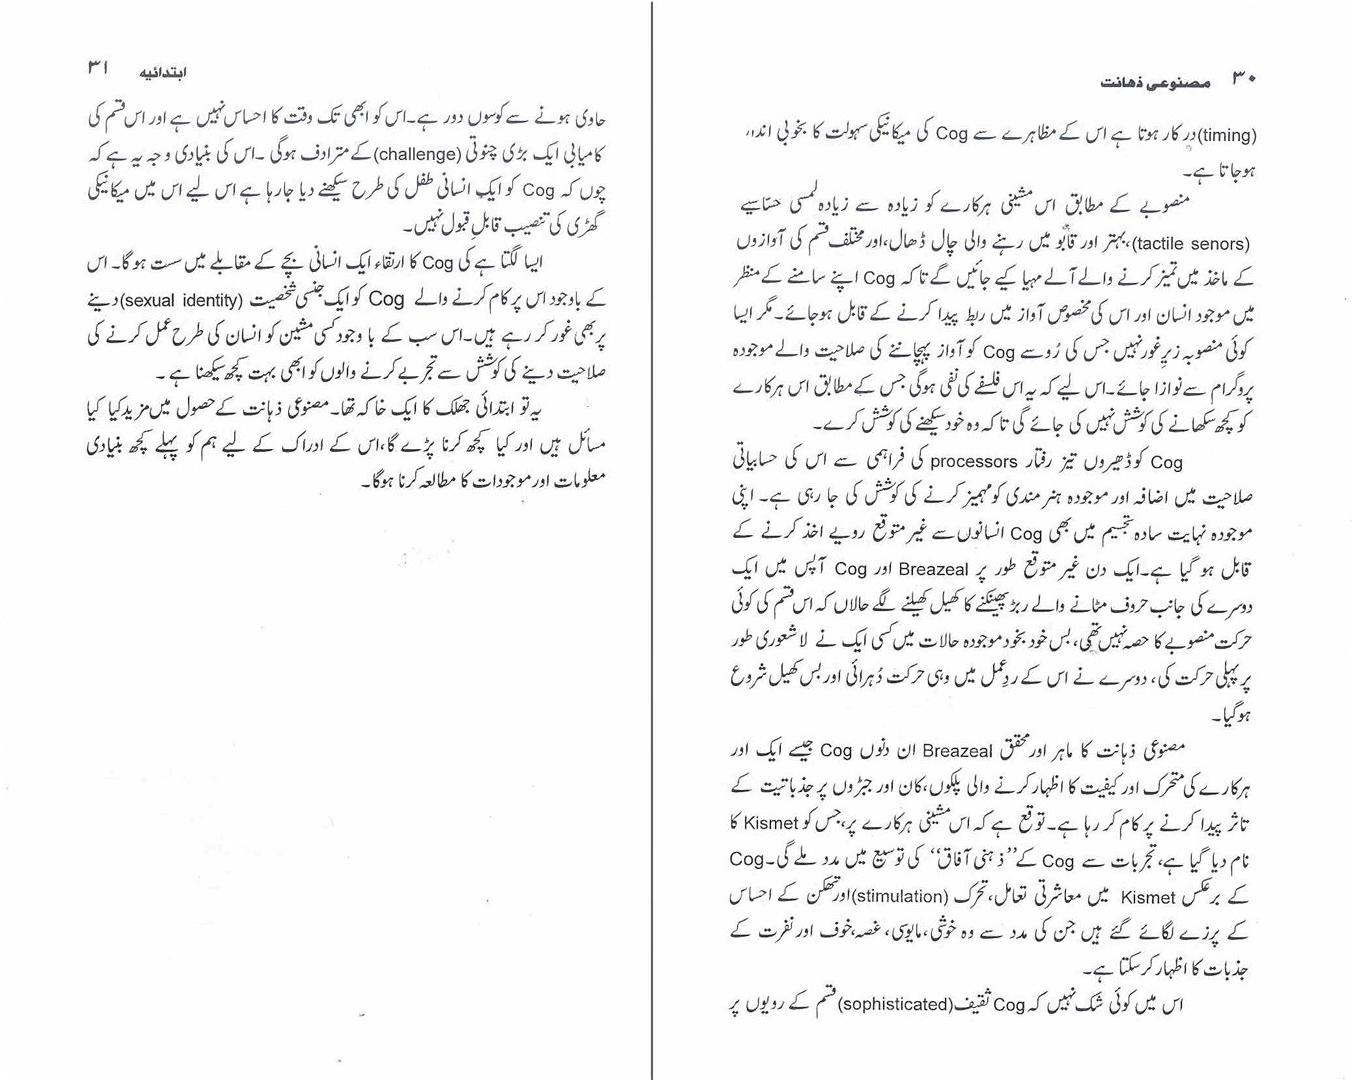 ۳۰ مصنوعی ذہانت
(timing) درکار ہوتا ہے اس کے مظاہرے سے Cog کی میکانیکی سہولت کا بخوبی اندازہ
ہوجاتا ہے۔
منصوبے کے مطابق اس مشینی ہرکارے کو زیادہ سے زیادہ لمسی حسّاسیے
(tactile senors)،بہتر اور قابُو میں رہنے والی چال ڈھال،اور مختلف قسم کی آوازوں
کے ماخذ میں تمیز کرنے والے آلے مہیا کیے جائیں گے تا کہ Cog اپنے سامنے کے منظر
میں موجود انسان اور اس کی مخصوص آواز میں ربط پیدا کرنے کے قابل ہوجائے۔مگر ایسا
کوئی منصوبہ زیرِ غور نہیں جس کی رُو سے Cog کو آواز پہچاننے کی صلاحیت والے موجودہ
پروگرام سے نوازا جائے۔اس لیے کہ یہ اس فلسفے کی نفی ہوگی جس کے مطابق اس ہرکارے
کو کچھ سکھانے کی کوشش نہیں کی جائے گی تا کہ وہ خود سیکھنے کی کوشش کرے۔
Cog کو ڈھیروں تیز رفتار processors کی فراہمی سے اس کی حسابیاتی
صلاحیت میں اضافہ اور موجودہ ہنر مندی کو مہمیز کرنے کی کوشش کی جا رہی ہے۔ اپنی
موجودہ نہایت سادہ تجسیم میں بھی Cog انسانوں سے غیر متوقع رویے اخذ کرنے کے
قابل ہو گیا ہے۔ایک دن غیر متوقع طور پر Breazeal اور Cog آپس میں ایک
دوسرے کی جانب حروف مٹانے والے ربڑ پھینکنے کا کھیل کھیلنے لگے حالاں کہ اس قسم کی کوئی
حرکت منصوبے کا حصہ نہیں تھی، بس خود بخود موجودہ حالات میں کسی ایک نے لا شعوری طور
پر پہلی حرکت کی، دوسرے نے اس کے ردِعمل میں وہی حرکت دُہرائی اور بس کھیل شروع
ہوگیا۔
مصنوعی ذہانت کا ماہر اور محقق Breazeal ان دنوں Cog جیسے ایک اور
ہرکارے کی متحرک اور کیفیت کا اظہار کرنے والی پلکوں،کان اور جبڑوں پر جذباتیت کے
تاثر پیدا کرنے پر کام کر رہا ہے۔توقع ہے کہ اس مشینی ہرکارے پر،جس کو Kismet کا
نام دیا گیا ہے،تجربات سے Cog کے ’’ذہنی آفاق‘‘ کی توسیع میں مدد ملے گی۔Cog
کے برعکس Kismet میں معاشرتی تعامل،تحرک (stimulation) اور تھکن کے احساس
کے پرزے لگائے گئے ہیں جن کی مدد سے وہ خوشی،مایوسی، غصہ،خوف اور نفرت کے
جذبات کا اظہار کر سکتا ہے۔
اس میں کوئی شک نہیں کہ Cog ثقیف(sophisticated) قسم کے رویوں پر
ابتدائیہ ۳۱
حاوی ہونے سے کوسوں دور ہے۔اس کو ابھی تک وقت کا احساس نہیں ہے اور اس قسم کی
کامیابی ایک بڑی چنوتی (challenge) کے مترادف ہوگی ۔اس کی بنیادی وجہ یہ ہے کہ
چوں کہ Cog کو ایک انسانی طفل کی طرح سیکھنے دیا جا رہا ہے اس لیے اس میں میکانیکی
گھڑی کی تنصیب قابلِ قبول نہیں۔
ایسا لگتا ہے کی Cog کا ارتقاء ایک انسانی بچے کے مقابلے میں سست ہوگا۔ اس
کے باوجود اس پر کام کرنے والے Cog کو ایک جنسی شخصیت (sexual identity) دینے
پر بھی غور کر رہے ہیں۔اس سب کے با وجود کسی مشین کو انسان کی طرح عمل کرنے کی
صلاحیت دینے کی کوشش سے تجربے کرنے والوں کو ابھی بہت کچھ سیکھنا ہے ۔
یہ تو ابتدائی جھلک کا ایک خاکہ تھا۔مصنوعی ذہانت کے حصول میں مزید کیا کیا
مسائل ہیں اور کیا کچھ کرنا پڑے گا،اس کے ادراک کے لیے ہم کو پہلے کچھ بنیادی
معلومات اور موجودات کا مطالعہ کرنا ہوگا۔